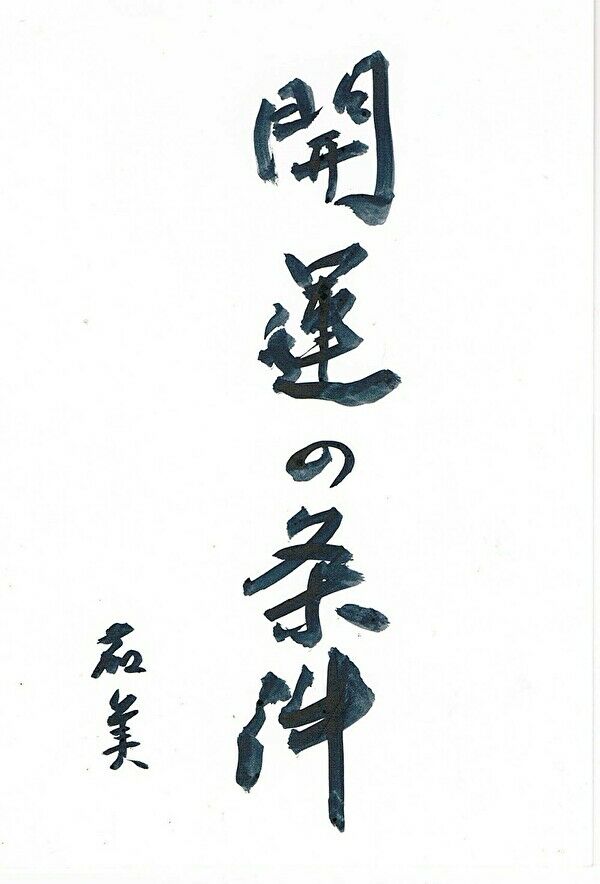 開運の条件
美